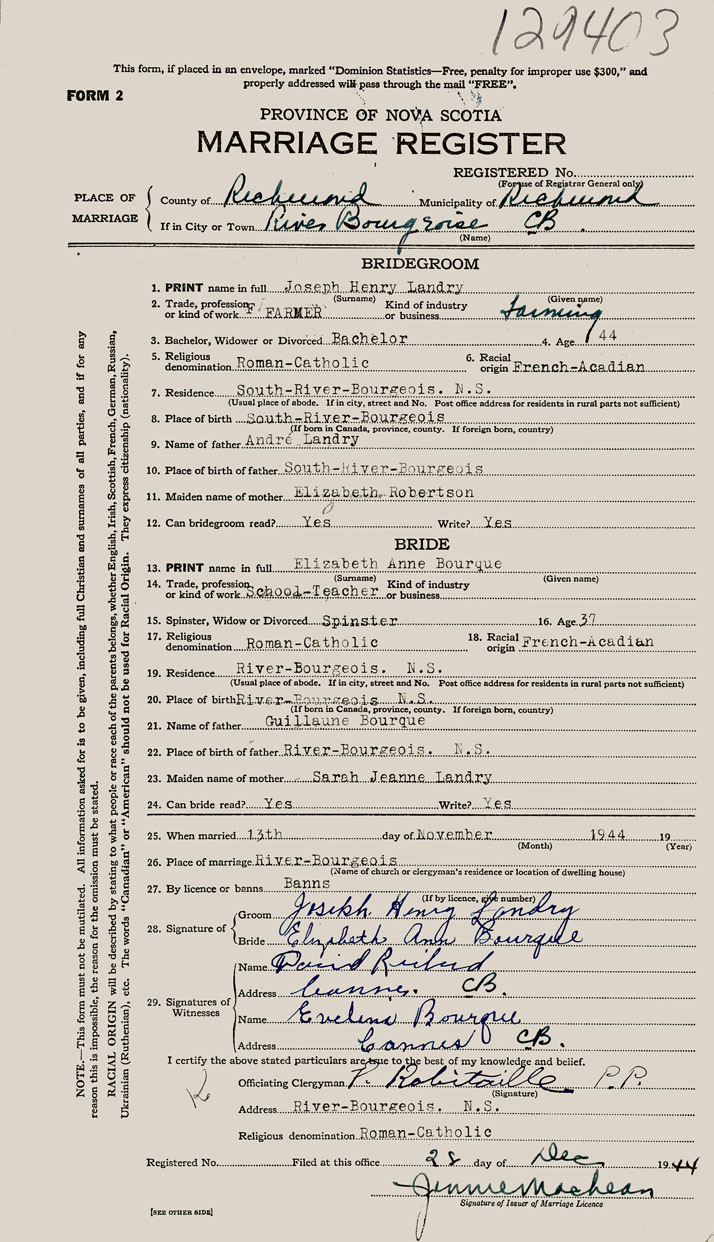 129403
This form, if placed in an envelope, marked "Dominion Statistics—Free, penalty for improper use $300," and
properly addressed will pass through the mail "FREE".
FORM 2
PROVINCE OF NOVA SCOTIA
MARRIAGE REGISTER
REGISTERED No.
(For use of Registrar General only)
PLACE OF MARRIAGE
County of Richmond Municipality of Richmond
If in City or Town River Bourgeoise CB.
(Name)
BRIDEGROOM
1. PRINT name in full Joseph Henry Landry
(Surname) (Given name)
2. Trade, profession or kind of work FARMER Kind of industry or business farming
3. Bachelor, Widower or Divorced Bachelor 4. Age 44
5. Religious denomination Roman-Catholic 6. Racial origin French-Acadian
7. Residence South-River-Bourgeois. N.S.
(Usual place of abode. If in city, street and No. Post office address for residents in rural parts not sufficient)
8. Place of birth South-River-Bourgeois
(If born in Canada, province, county. If foreign born, country)
9. Name of father André Landry
10. Place of birth of father South-River-Bourgeois
11. Maiden name of mother Elizabeth Robertson
12. Can bridegroom read? Yes Write? Yes
BRIDE
13. PRINT name in full Elizabeth Anne Bourque
(Surname) (Given name)
14. Trade, profession or kind of work School-Teacher Kind of industry or business
15. Spinster, Widow or Divorced Spinster 16. Age 37
17. Religious denomination Roman-Catholic 18. Racial origin French-Acadian
19. Residence River-Bourgeois. N.S.
(Usual place of abode. If in city, street and No. Post office address for residents in rural parts not sufficient)
20. Place of birth River-Bourgeois N.S.
(If born in Canada, province, county. If foreign born, country)
21. Name of father Guillaune Bourque
22. Place of birth of father River-Bourgeois. N.S.
23. Maiden name of mother Sarah Jeanne Landry
24. Can bride read? Yes Write? Yes
25. When married 13th day of November 1944 19
(Month) (Year)
26. Place of marriage River-Bourgeois
(Name of church or clergyman's residence or location of dwelling house)
27. By licence or banns Banns
(If by licence, give number)
28. Signature of
Groom Joseph Henry Landry
Bride Elizabeth Ann Bourque
29. Signatures of Witnesses
Name David
Address Cannes. CB.
Name Evelina Bourque
Address Cannes CB.
I certify the above stated particulars are true to the best of my knowledge and belief.
Officiating Clergyman P. Robitaille P.P.
(Signature)
Address River-Bourgeois. N.S.
Religious denomination Roman-Catholic
Registered No. Filed at this office 28 day of Dec 1944
Jennie MacLean
Signature of Issuer of Marriage Licence
[SEE OTHER SIDE]
NOTE.—This form must not be mutilated. All information asked for is to be given, including full Christian and surnames of all parties, and if for any
reason this is impossible, the reason for the omission must be stated.
RACIAL ORIGIN will be described by stating to what people or race each of the parents belongs, whether English, Irish, Scottish, French, German, Russian,
Ukrainian (Ruthenian), etc. The words "Canadian" or "American" should not be used for Racial Origin. They express citizenship (nationality).